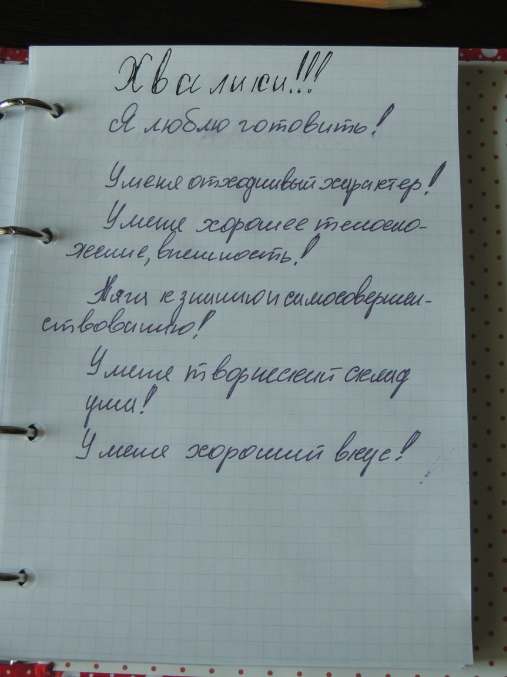 Хвалики!!!
Я люблю готовить!
У меня отходчивый характер!
У меня хорошее телосло-
жение, внешность!
Тяга к знанию и самосовершен-
ствованию!
У меня творческий склад
ума!
У меня хороший вкус!